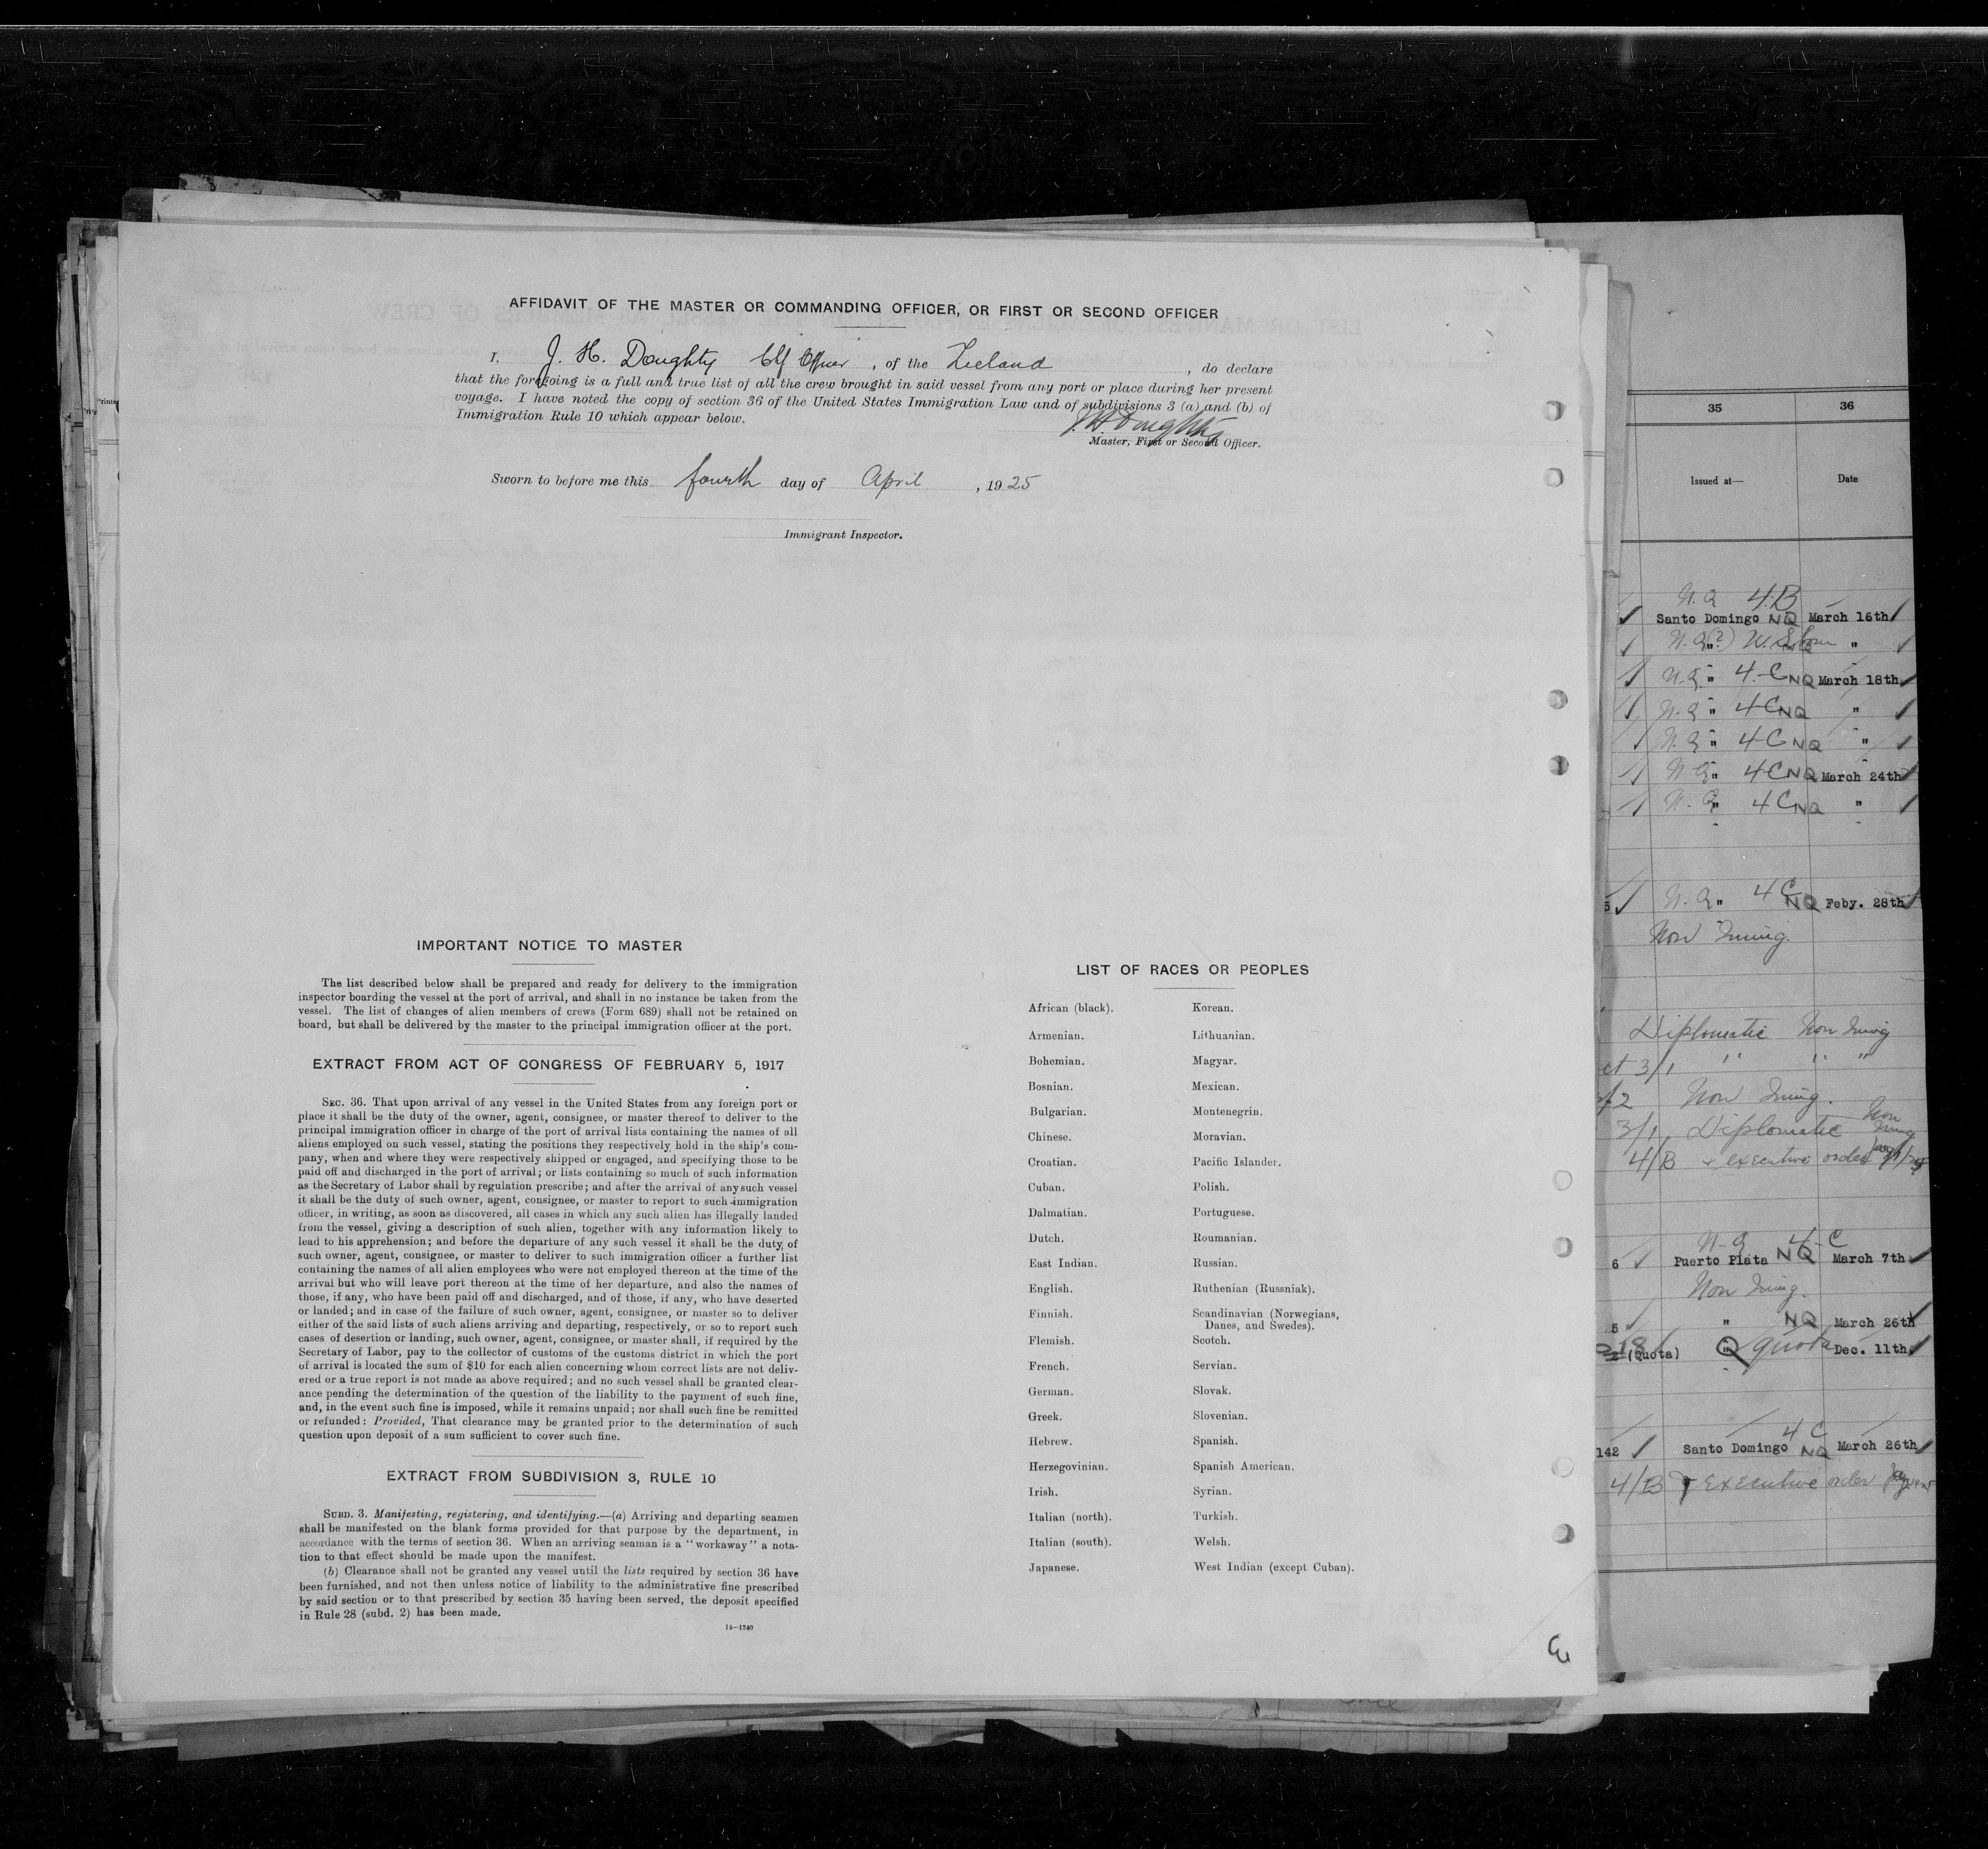 AFFIDAVIT OF THE MASTER OR COMMANDING OFFICER, OR FIRST OR SECOND OFFICER
I, J. H. Doughty Chf Officer, of the Zeeland, do declare
that the foregoing is a full and true list of all the crew brought in said vessel from any port or place during her present
voyage. I have noted the copy of section 36 of the United States Immigration Law and of subdivisions 3 (a) and (b) of
Immigration Rule 10 which appear below.
J H Doughty
Master, First or Second Officer.
Sworn to before me this fourth day of April, 1925
Immigrant Inspector.
IMPORTANT NOTICE TO MASTER
The list described below shall be prepared and ready for delivery to the immigration
inspector boarding the vessel at the port of arrival, and shall in no instance be taken from the
vessel. The list of changes of alien members of crews (Form 689) shall not be retained on
board, but shall be delivered by the master to the principal immigration officer at the port.
EXTRACT FROM ACT OF CONGRESS OF FEBRUARY 5, 1917
SEC. 36. That upon arrival of any vessel in the United States from any foreign port or
place it shall be the duty of the owner, agent, consignee, or master thereof to deliver to the
principal immigration officer in charge of the port of arrival lists containing the names of all
aliens employed on such vessel, stating the positions they respectively hold in the ship's com-
pany, when and where they were respectively shipped or engaged, and specifying those to be
paid off and discharged in the port of arrival; or lists containing so much of such information
as the Secretary of Labor shall by regulation prescribe; and after the arrival of any such vessel
it shall be the duty of such owner, agent, consignee, or master to report to such immigration
officer, in writing, as soon as discovered, all cases in which any such alien has illegally landed
from the vessel, giving a description of such alien, together with any information likely to
lead to his apprehension; and before the departure of any such vessel it shall be the duty of
such owner, agent, consignee, or master to deliver to such immigration officer a further list
containing the names of all alien employees who were not employed thereon at the time of the
arrival but who will leave port thereon at the time of her departure, and also the names of
those, if any, who have been paid off and discharged, and of those, if any, who have deserted
or landed; and in case of the failure of such owner, agent, consignee, or master so to deliver
either of the said lists of such aliens arriving and departing, respectively, or so to report such
cases of desertion or landing, such owner, agent, consignee, or master shall, if required by the
Secretary of Labor, pay to the collector of customs of the customs district in which the port
of arrival is located the sum of $10 for each alien concerning whom correct lists are not deliv-
ered or a true report is not made as above required; and no such vessel shall be granted clear-
ance pending the determination of the question of the liability to the payment of such fine,
and, in the event such fine is imposed, while it remains unpaid; nor shall such fine be remitted
or refunded: Provided, That clearance may be granted prior to the determination of such
question upon deposit of a sum sufficient to cover such fine.
EXTRACT FROM SUBDIVISION 3, RULE 10
SUBD. 3. Manifesting, registering, and identifying.—(a) Arriving and departing seamen
shall be manifested on the blank forms provided for that purpose by the department, in
accordance with the terms of section 36. When an arriving seaman is a "workaway" a nota-
tion to that effect should be made upon the manifest.
(b) Clearance shall not be granted any vessel until the lists required by section 36 have
been furnished, and not then unless notice of liability to the administrative fine prescribed
by said section or to that prescribed by section 35 having been served, the deposit specified
in Rule 28 (subd. 2) has been made.
14—1240
LIST OF RACES OR PEOPLES
African (black). Korean.
Armenian. Lithuanian.
Bohemian. Magyar.
Bosnian. Mexican.
Bulgarian. Montenegrin.
Chinese. Moravian.
Croatian. Pacific Islander.
Cuban. Polish.
Dalmatian. Portuguese.
Dutch. Roumanian.
East Indian. Russian.
English. Ruthenian (Russniak).
Finnish. Scandinavian (Norwegians,
Danes, and Swedes).
Flemish. Scotch.
French. Servian.
German. Slovak.
Greek. Slovenian.
Hebrew. Spanish.
Herzegovinian. Spanish American.
Irish. Syrian.
Italian (north). Turkish.
Italian (south). Welsh.
Japanese. West Indian (except Cuban).
35 36
Issued at— Date
N.Q 4.B
Santo Domingo NQ March 16th
N.Q " (?) "
N.Q " 4-C NQ March 18th
N.Q " 4C NQ "
N.Q " 4C NQ "
N.Q " 4C NQ March 24th
N.Q " 4C NQ "
5 N.Q " 4C NQ Feby. 28th
Non Immig.
Diplomatic Non Immig
ct 3/1 " " "
2 Non Immig.
3/1 Diplomatic Non Immig
4/B executive order
N-Q 4-C
6 Puerto Plata NQ March 7th
Non Immig.
5 " NQ March 26th
(Quota) Q quota Dec. 11th
4 C
142 Santo Domingo NQ March 26th
4/B executive order